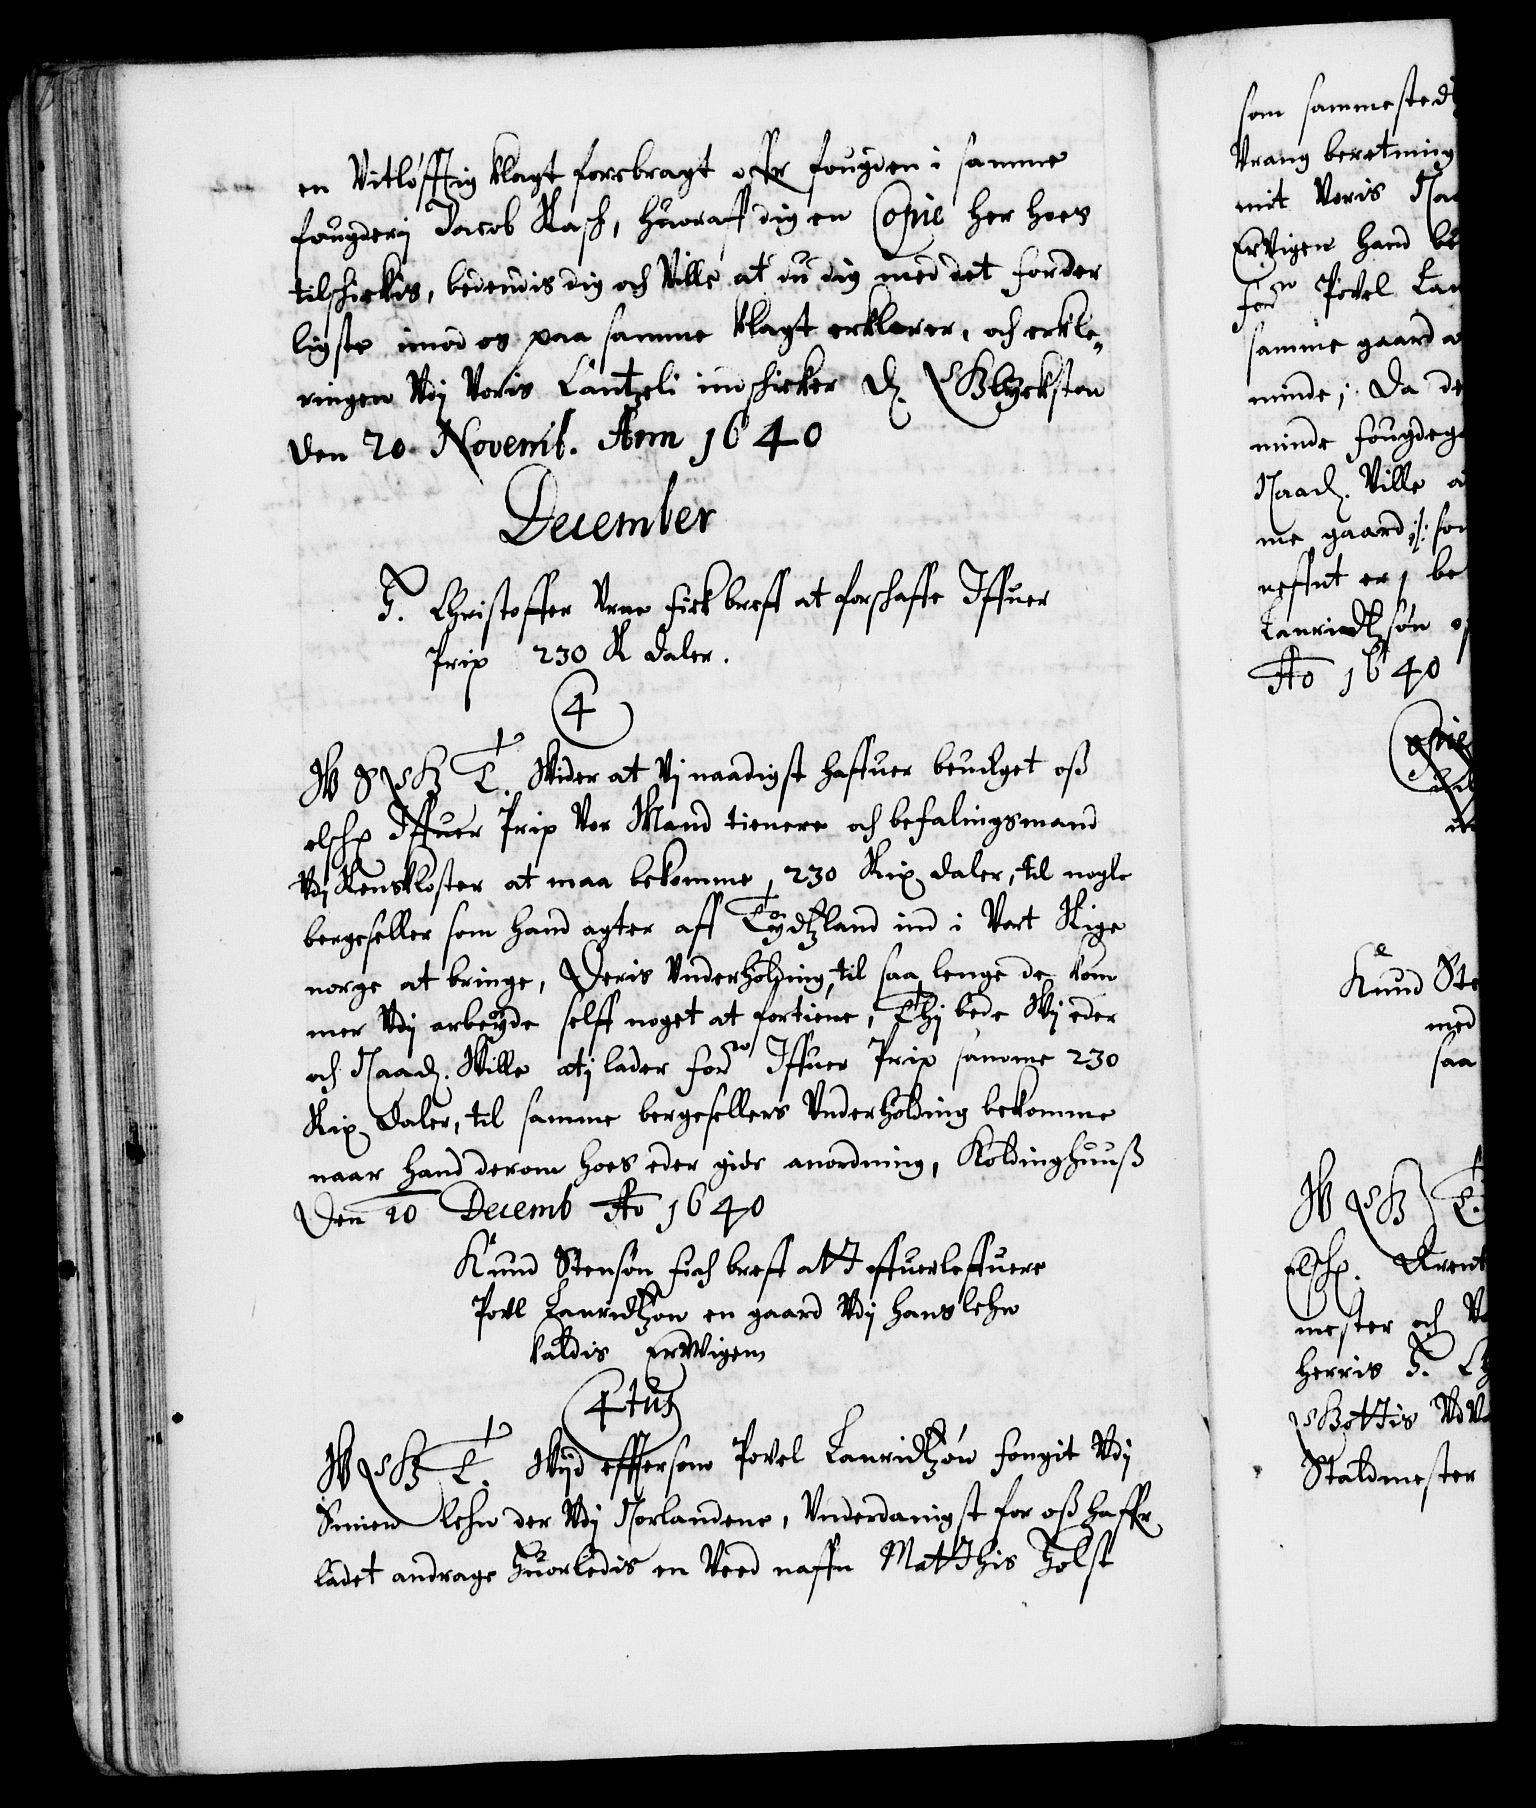 en Vitløfftig klagt forebragt offr fougden i samme
fougderj Jacob Rasch, huoraff dig en Copie her hoes
tilschickis, bedendis dig och Ville at du dig med det forder
ligste imod os paa samme klagt erklerer, och erkle„
ringen Vdj Voris Cantzeli indschicker d. Glyckston
den 20 Novemb. Ann 1640
December
H. Christoffer Vrne fick breff at forschaffe Iffuer
Prip 230 R daler.
4
W G T. Wider at Vj naadigst haffuer beuilget oß
elsch Iffuer Prip Vor Mand tienere och befalingsmand
Vdj Renskloster at maa bekomme, 230 Rix daler, til nogle
bergeseller som hand agter aff Tydtzland ind i Vort Rige
norge at bringe, Deris Vnderholding, til saa lenge de kom
mer Vdj arbeyde selff noget at fortiene, Thj bede Wj eder
och Naad. Wille atj lader forne Iffuer Prip samme 230
Rix Daler, til samme bergesellers Vnderholding bekomme
naar hand derom hoes eder giør anordning, Koldinghuuß
Den 20 Decemb Ao 1640
Knud Stensøn fich breff att offuerleffuere
Povl Lauridtzøn en gaard Vdj hans lehn
kaldis ErVvigen
4 tus
W G T. Wijd efftersom Povel Lauridtzøn fougit Vdj
lehn der Vdj Norlandene, Vnderdanigst for oß haffr
ladet andrage huorledis en Ved naffn Matthis Holst
som sammested
Vrang beretning
mit Voris
ErVigen hand be
forne Povel Lau
samme gaard
minde; Da de
minde fougdeg
Naad. Ville a
me gaard :/: som
neffnt er, be
Lauridtzsøn
Ao 1640
Copie
Knud Ste
med
saa
W G T.
Elsch.
mester och
herris H.
Vdv
Staldmester